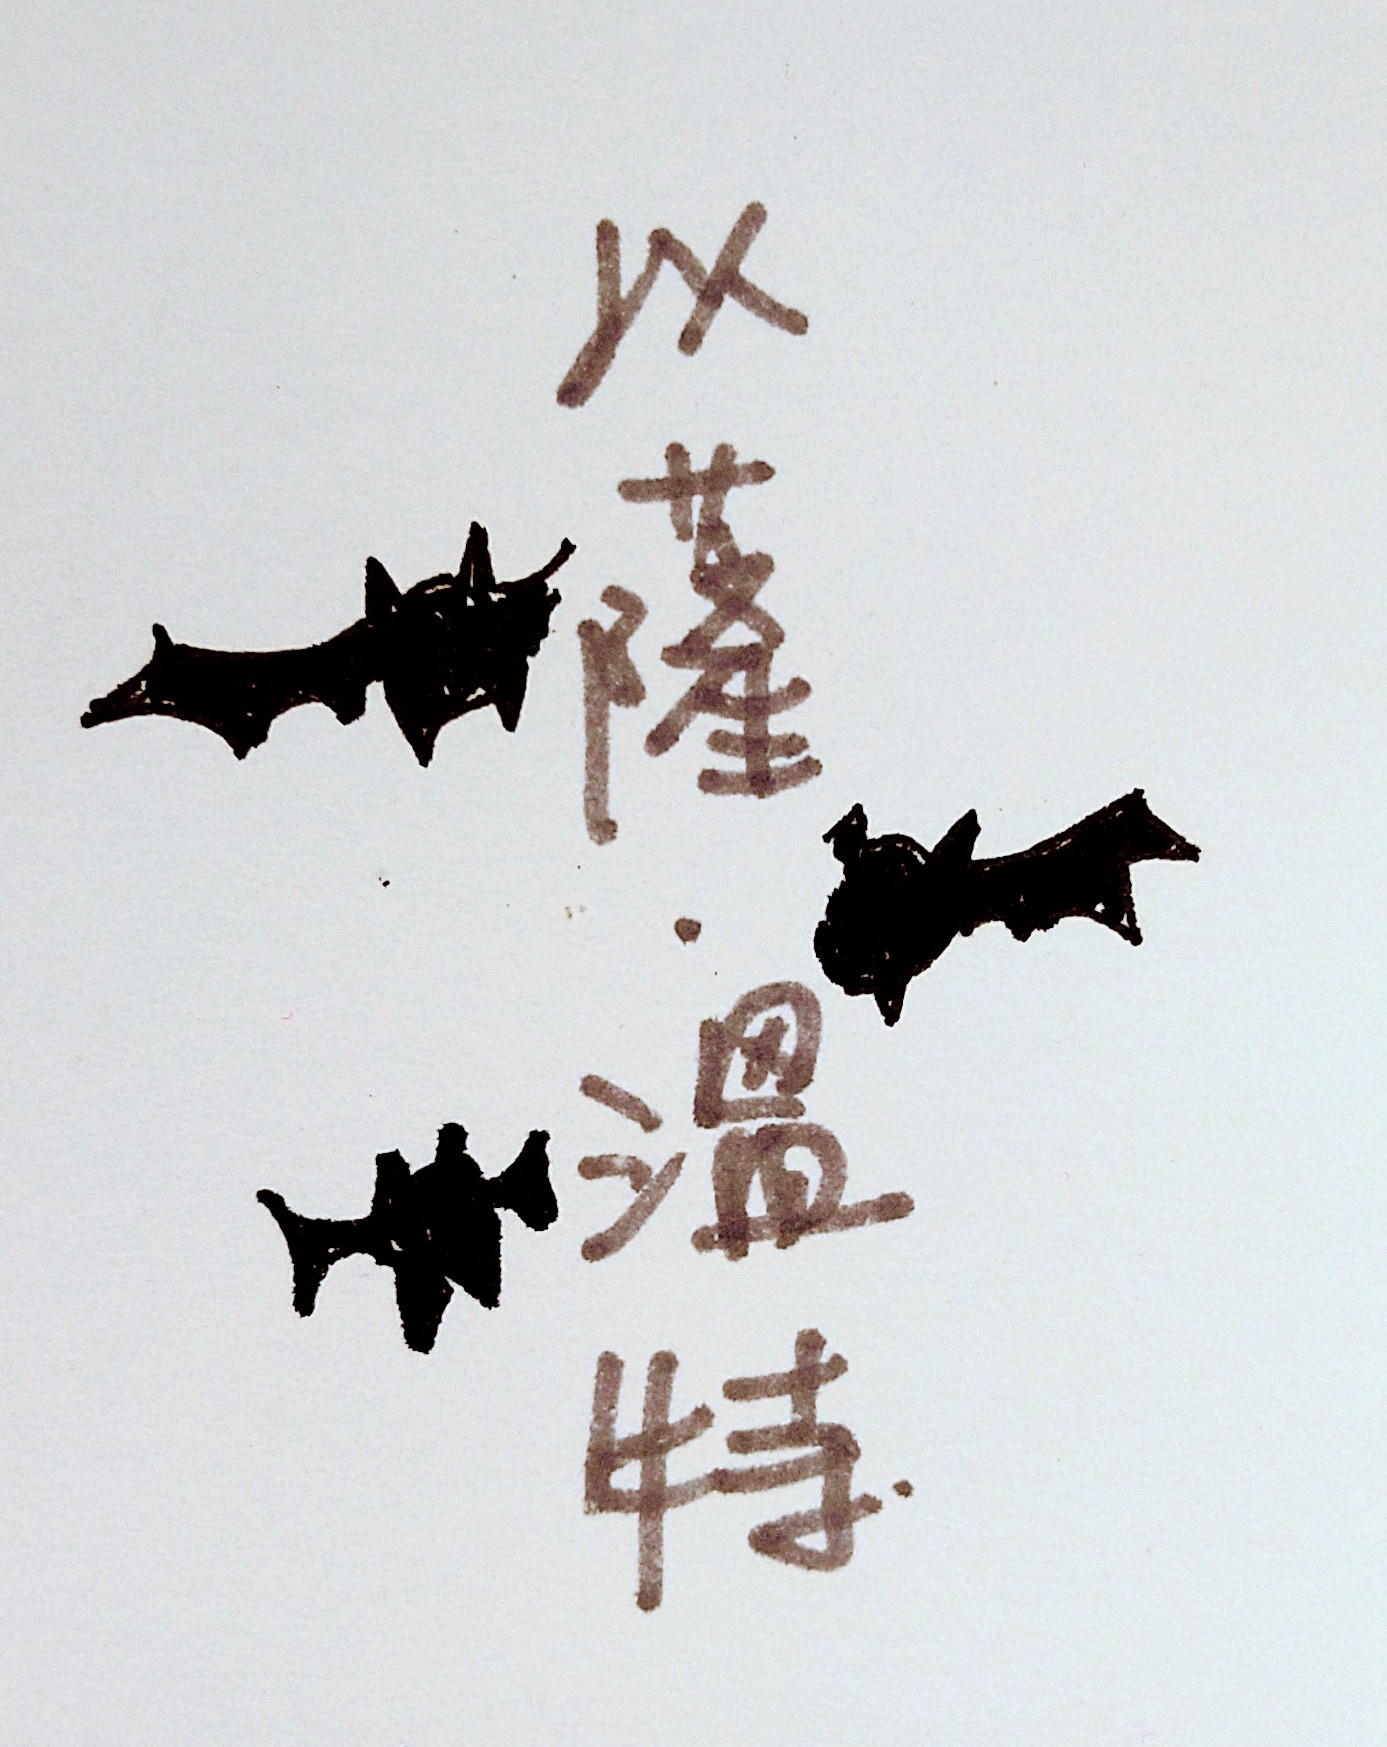 以薩·溫特